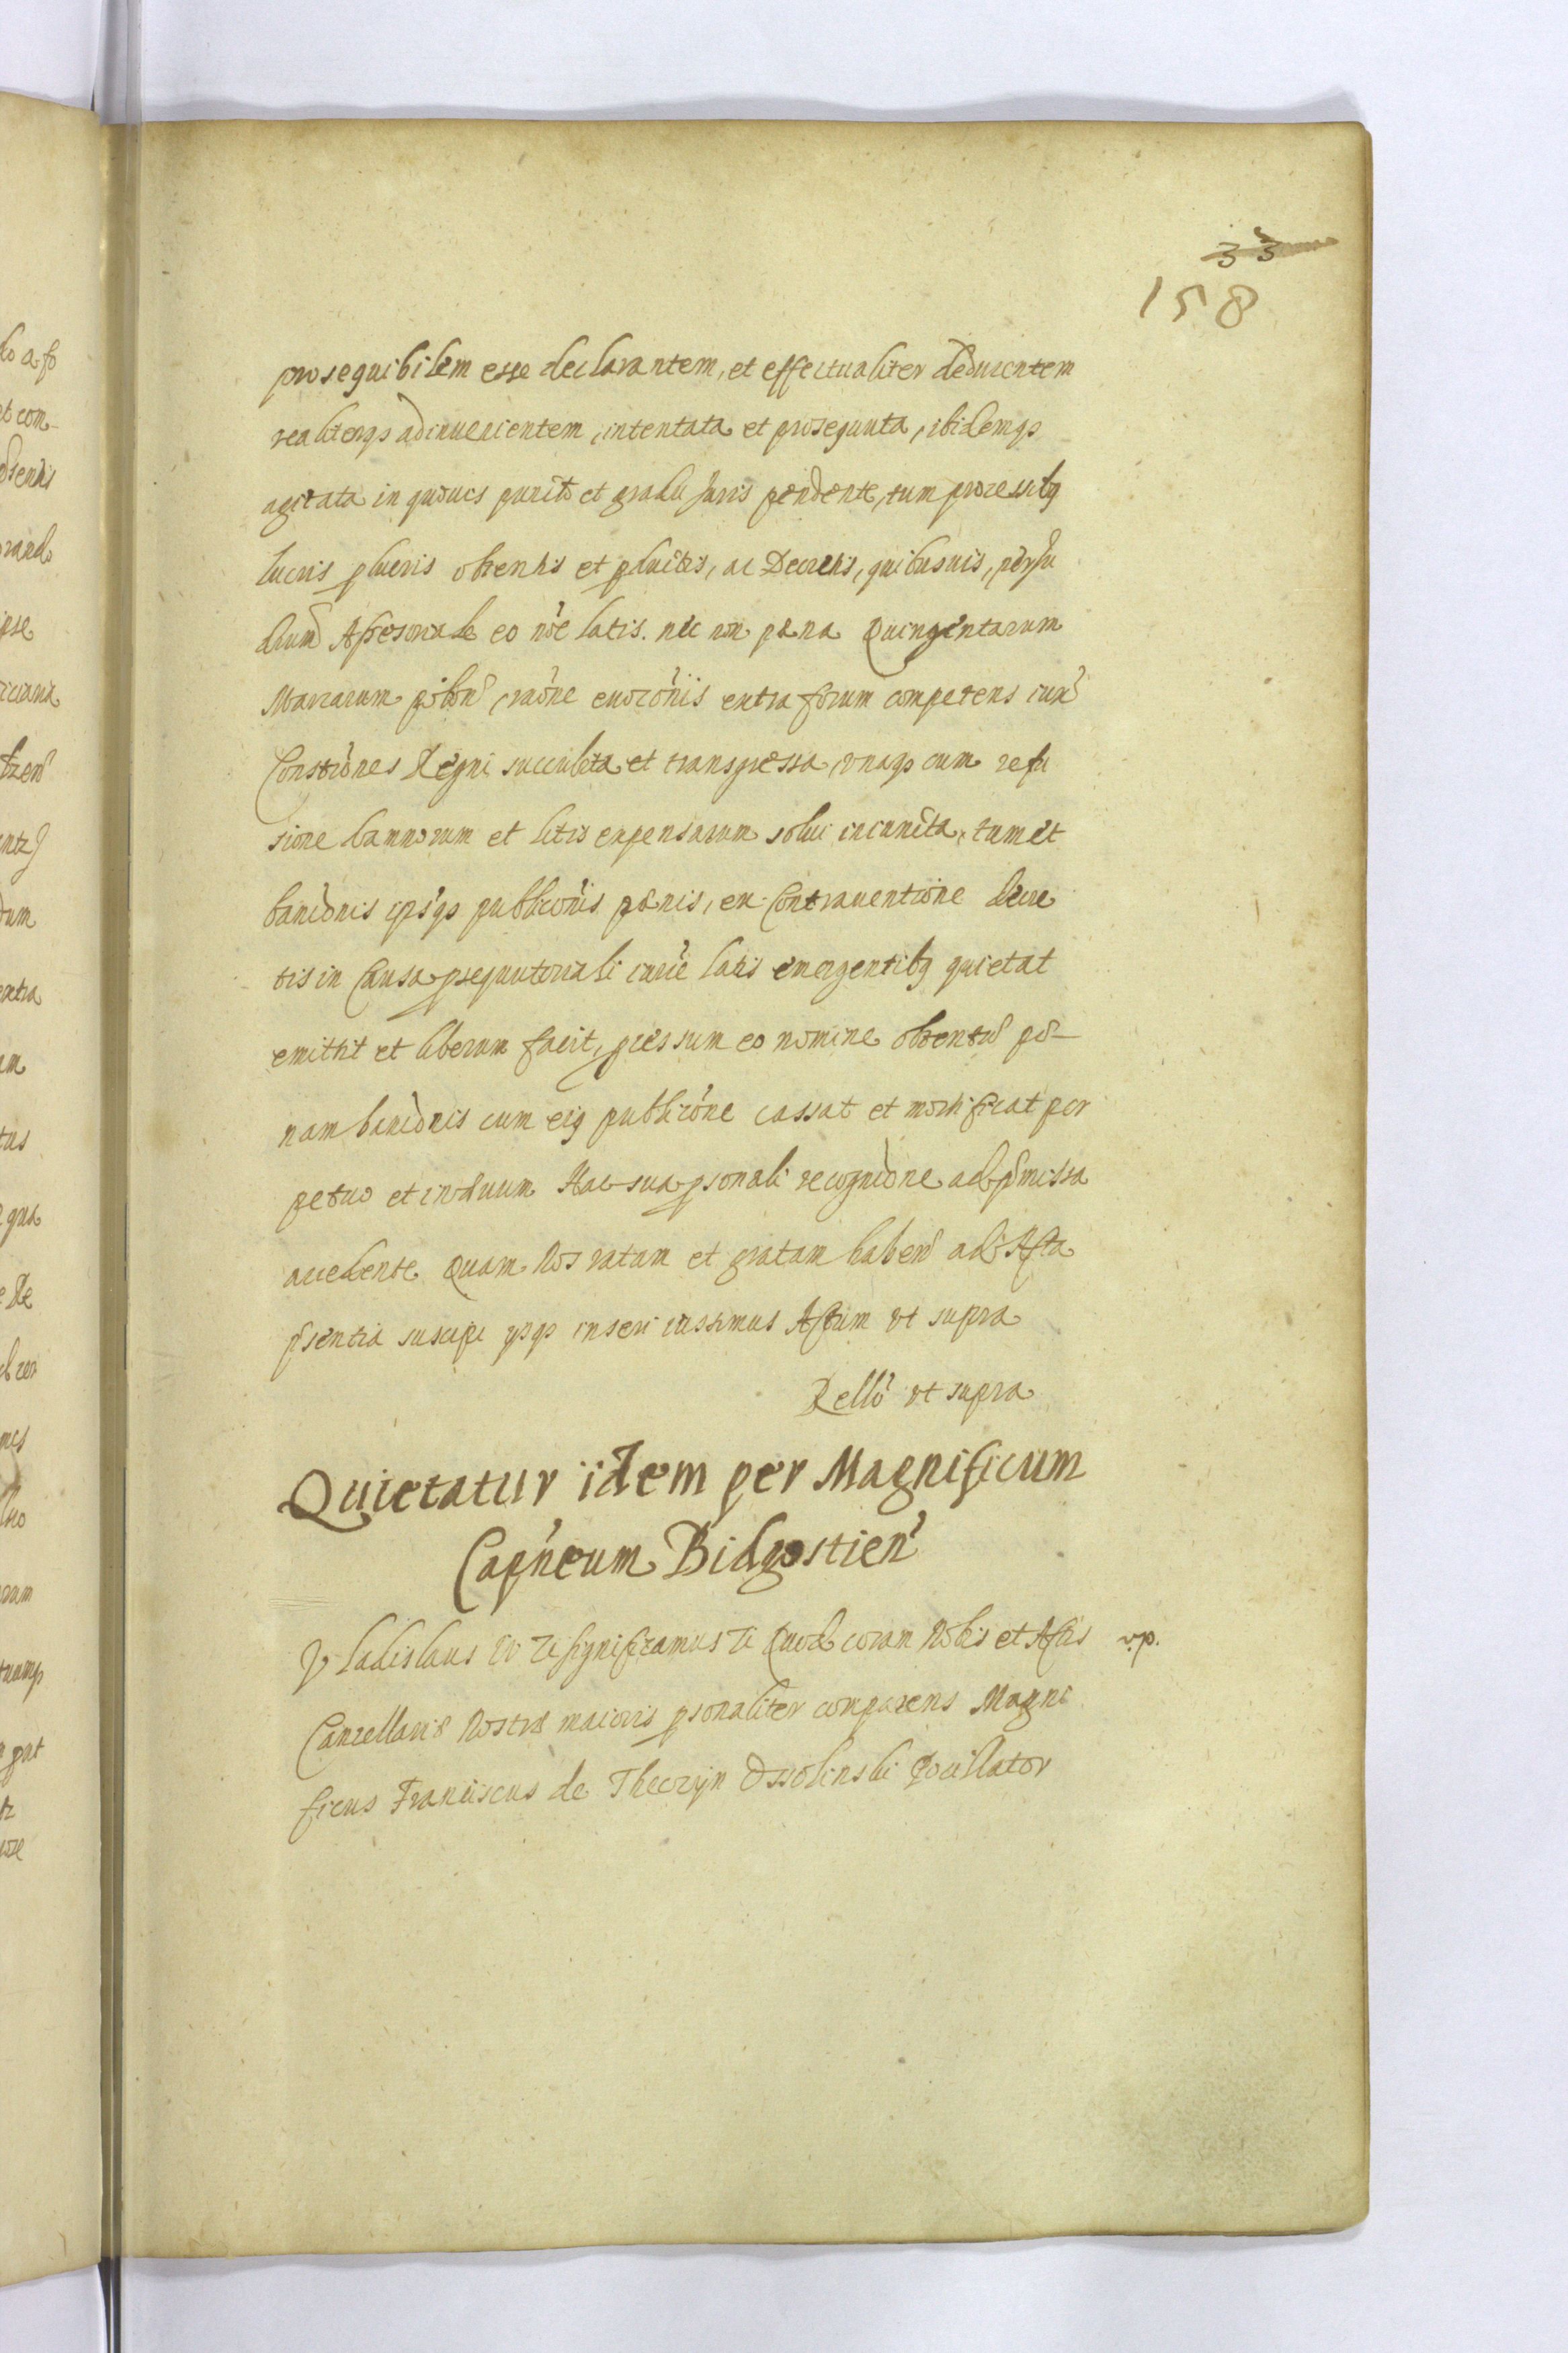 33
158
prosequibilem esse declarantem, et effectualiter deducentem
realiterqꝫ adinuenientem, intentata et prosequuta, ibidemqꝫ
agitata in quouis puncto et gradu Juris pendente, tum processibꝫ
lucris et ac Decretis, quibusuis, per Ju
dicium Assessoriale eo nõe latis. nec non pæna Quingentarum
Marcarum raõne euocõnis extra forum competens
Constiõnes Regni succubita et transgressa, vnaqꝫ cum refu
sione damnorum et litis expensarum solui tum et
baniõnis ipsqꝫ publicõnis pænis, ex Contrauentione decre
tis in Causa ꝓsequutoriali latis emergentibꝫ quietat
emittit et liberum facit, ꝓcessum eo nomine obtentũ pæ-
nam baniõnis cum eiꝫ publicõne cassat et mortificat per
petuo et in æuum Hac sua ꝑsonali recogniõne ad p̃missa
accedente Quam Nos ratam et gratam haben̄ ad Acta
p̃sentia suscipi ysqꝫ inseri iussimus Actum vt supra
Rellõ vt supra
Quietatur idem per Magnificum
Capn̄eum Bidgostien̄
Vladislaus IV etc significamus etc Quod coram Nobis et Actis
v.p.
Cancellariæ Nostræ maioris ꝑsonaliter comparens Magni
ficus Franciscus de Theczyn Ossolinski Pocillator